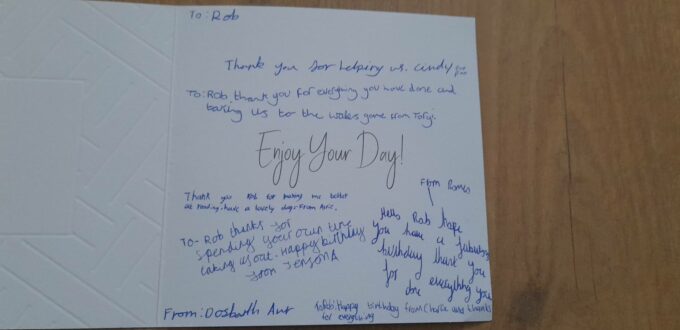 To: Rob
Thank you for helping us. cindy
To: Rob thank you for everything you have done and
taking us to the wales game from Torfi.
Enjoy Your Day!
From Romes
Thank you Rob for making me better
at reading. have a lovely day. From Aeric.
To- Rob thanks for
spending your own time
taking us out. Happy birthday
from Jensona
Hello Rob hope
you have a fabulous
birthday thank you
for
done everything you
From: Dosbarth Aur
To Rob: Happy birthday from Charlie and thanks
for everything